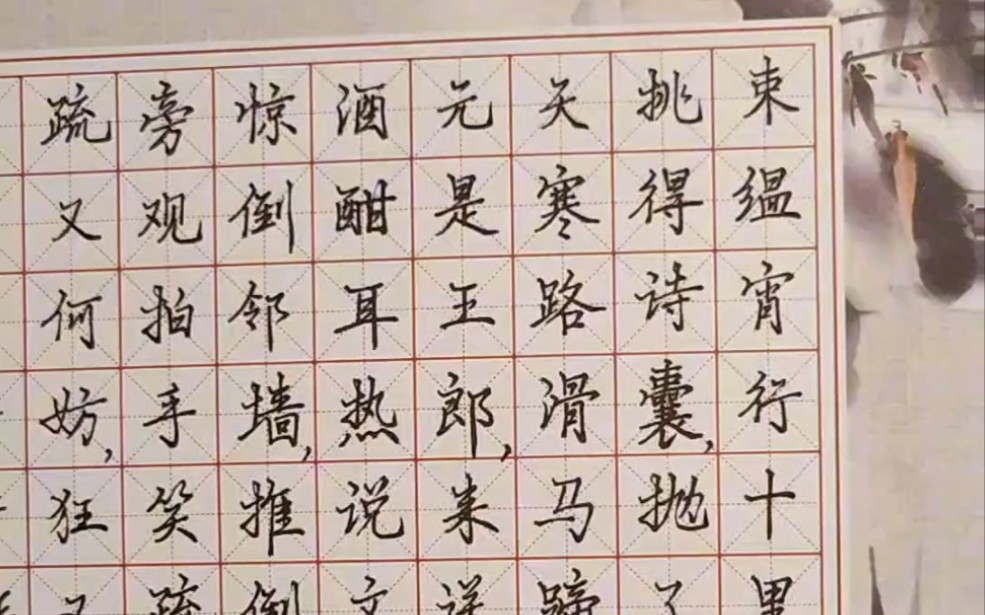 束缊宵行十里
挑得诗囊,抛了
天寒路滑马蹄
元是王郎,来送
酒酣耳热说文
惊倒邻墙,推倒
旁观拍手笑疏
疏又何妨,狂又